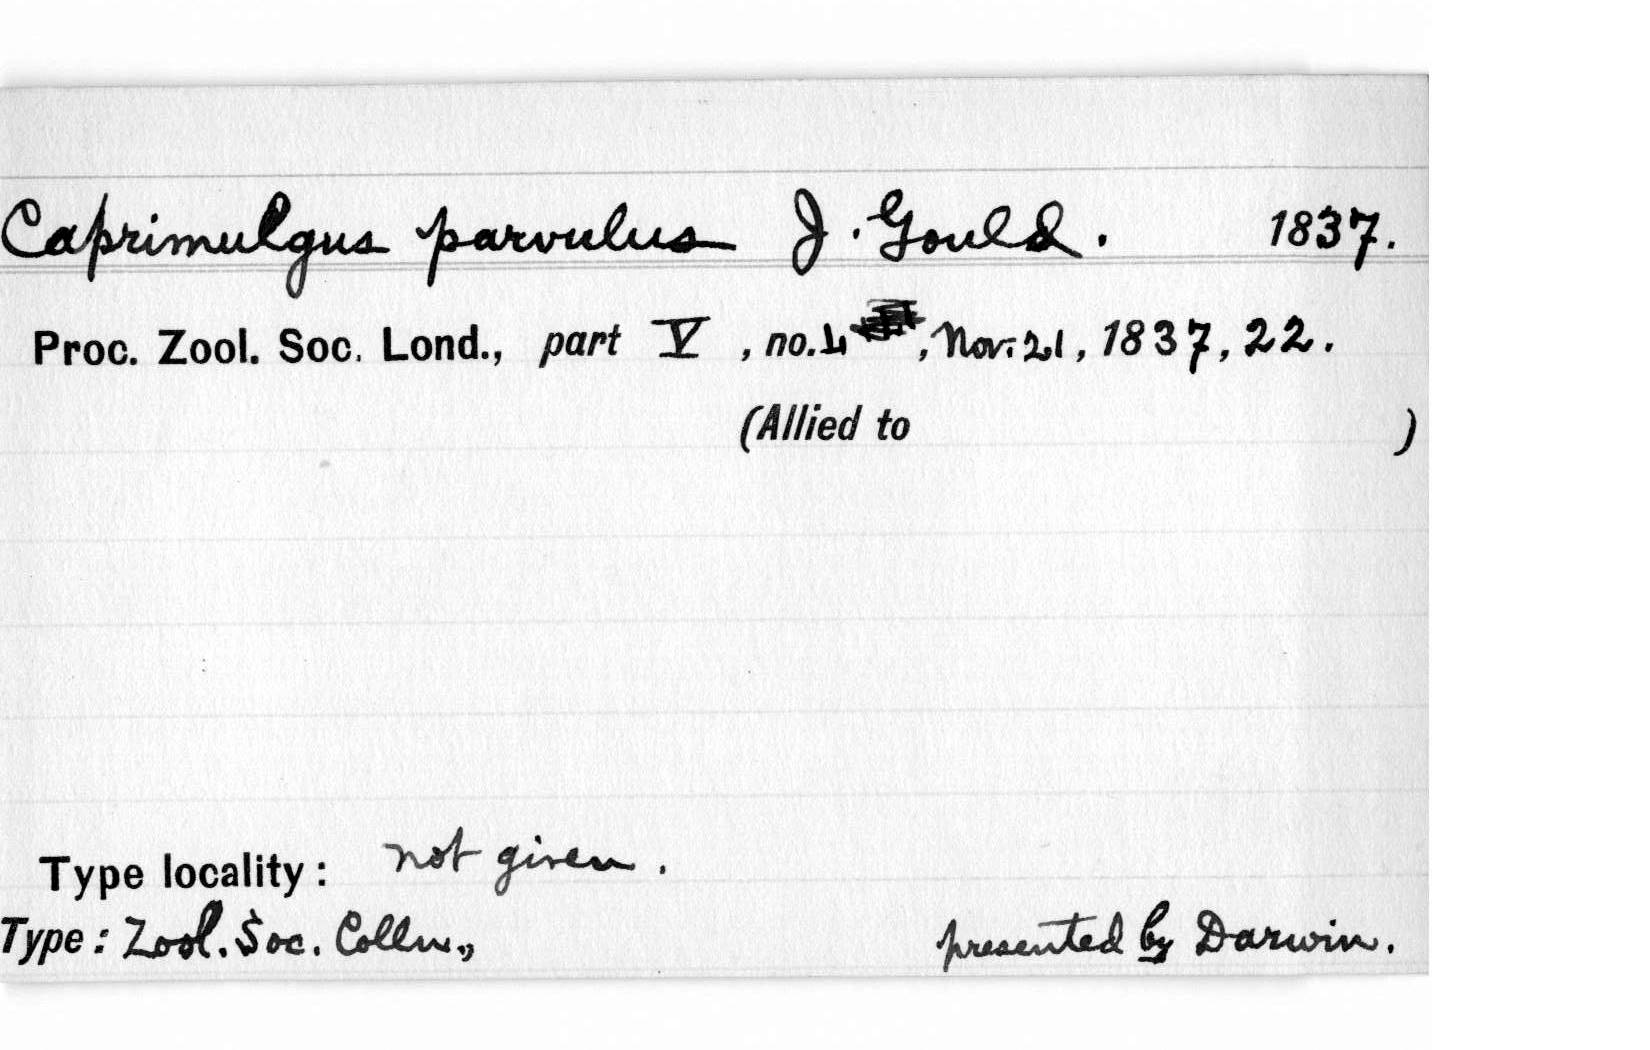 Caprimulgus parvulus J. Gould. 1837.
Proc. Zool. Soc. Lond., part V, no. 4, Nov: 21, 1837, 22.
(Allied to )
Type locality: not given.
Type: Zool. Soc. Colln., presented by Darwin.